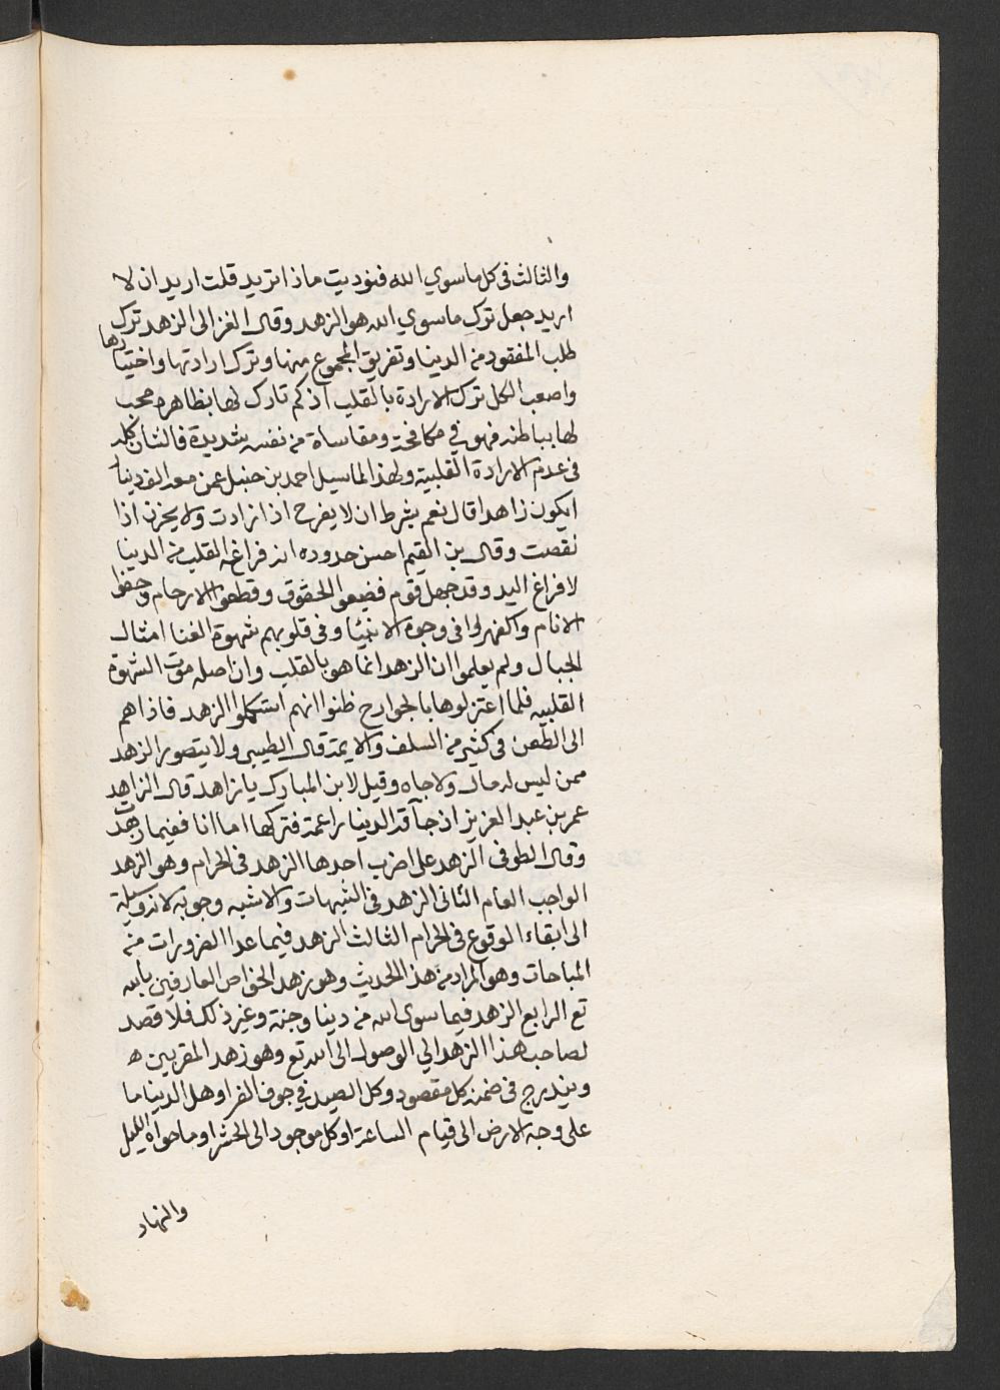 والثالث في كل ما سوي الله فنوديت ماذا تريد قلت اريد ان لا
اريد جعل ترك ما سوي الله هو الزهد وقال الغزالى الزهد ترك
طلب المفقود من الدينا وتفريق المجموع منها وترك ارادتها واختيارها
واصعب الكل ترك الارادة بالقلب اذ كم تارك لها بظاهره محب
لها بباطنه فهو في مكافحة ومقاساة من نفسه شديدة فالشان كله
في عدم الارادة القلبية ولهذا لما سيل احمد بن حنبل عمن معه الف دينار
ايكون زاهدا قال نعم بشرط ان لا يفرح اذا زادت ولا يحزن اذا
نقصت وقال بن القيم احسن حدوده انه فراغ القلب من الدينا
لا فراغ اليد وقد جهل قوم فضيعوا الحقوق وقطعوا الارحام وجفوا
الانام واكفهروا في وجوه الاغنيا وفي قلوبهم شهوة الغنا امثال
الجبال ولم يعلموا ان الزهد انما هو بالقلب وان اصله موت الشهوة
القلبيه فلما اعتزلوها بالجوارح ظنوا انهم استكملوا الزهد فاذاهم
الى الطعن في كثير من السلف والايمة قال الطيبي ولا يتصور الزهد
ممن ليس له مال ولا جاه وقيل لابن المبارك يا زاهد قال الزاهد
عمر بن عبد العزيز اذ جآته الدينا راغمة فتركها اما انا ففيما زهدت
وقال الطوفى الزهد على اضرب احدها الزهد في الحرام وهو الزهد
الواجب العام الثانى الزهد في الشبهات والاشبه وجوبه لانه وسيلة
الى ابقاء الوقوع في الحرام الثالث الزهد فيما عدا الضرورات من
المباحات وهو المراد من هذا الحديث وهو زهد الخواص العارفين بالله
تع الرابع الزهد فيما سوى الله من دينا وجنة وغير ذلك فلا قصد
لصاحب هذا الزهد الي الوصول الى الله تع وهو زهد المقربين ه
ويندرج في ضمنه كل مقصود وكل الصيد في جوف الفرا وهل الدينا ما
على وجه الارض الى قيام الساعة او كل موجود الى الحشر او ما حواه الليل
والنهار